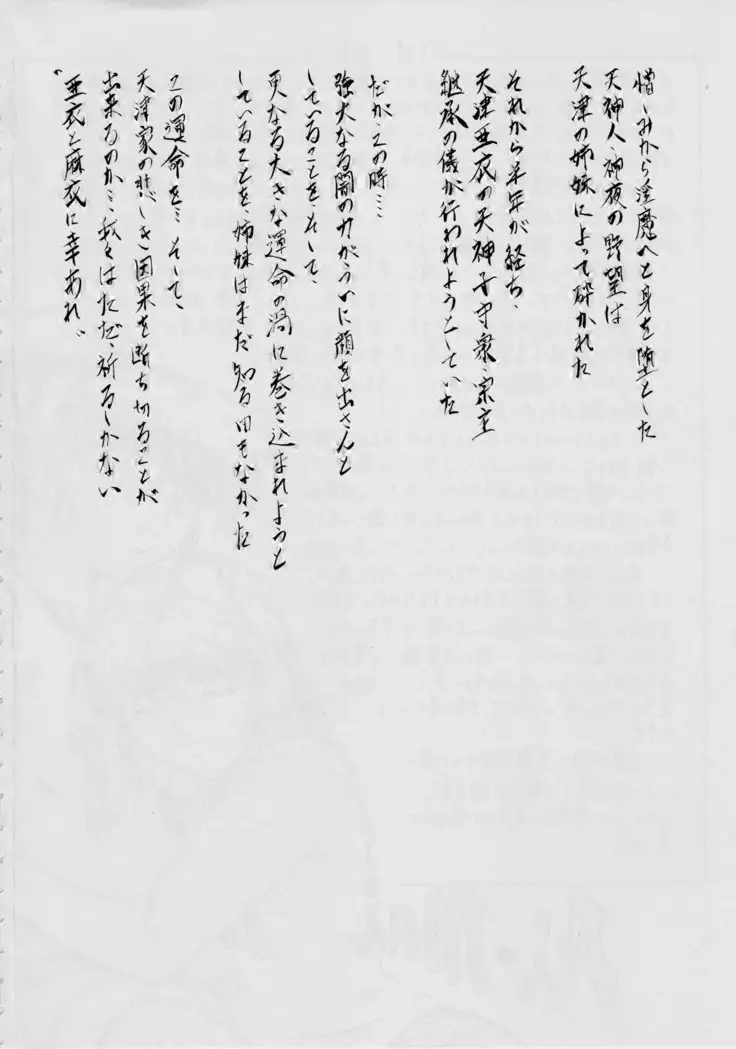 憎しみから淫魔へと身を堕とした
天神人・神夜の野望は
天津の姉妹によって砕かれた
それから半年が経ち、
天津亜衣の天神子守衆・宗主
継承の儀が行われようとしていた
だが、この時…
強大なる闇の力がついに顔を出さんと
していることを、そして、
更なる大きな運命の渦に巻き込まれようと
していることを、姉妹はまだ知る由もなかった
この運命を… そして、
天津家の悲しき因果を断ち切ることが
出来るのか… 我々はただ祈るしかない
“亜衣と麻衣に幸あれ”